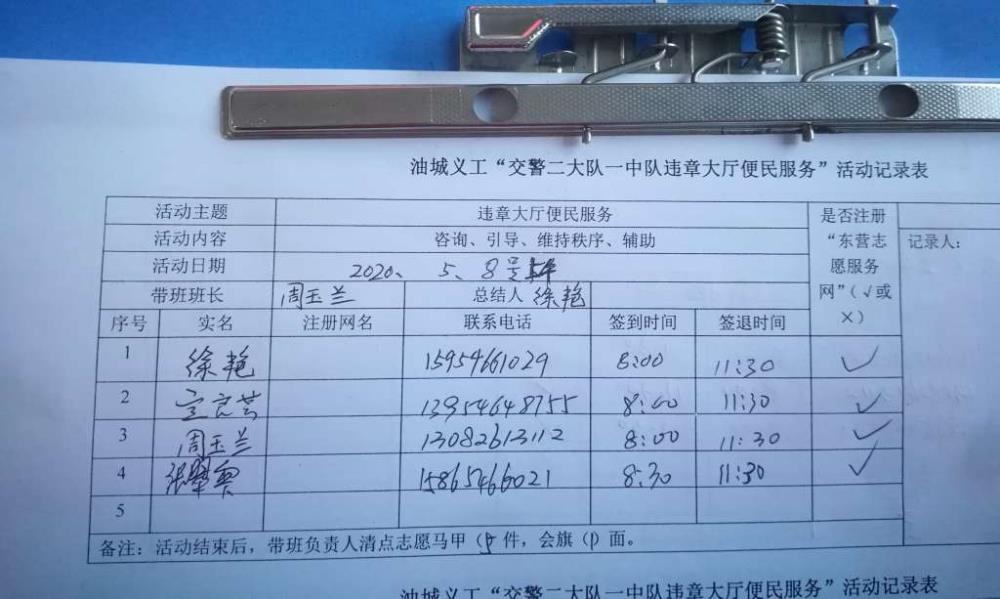 油城义工“交警二大队一中队违章大厅便民服务”活动记录表
活动主题 违章大厅便民服务 是否注册“东营志愿服务网”(√或×)
活动内容 咨询、引导、维持秩序、辅助 记录人:
活动日期 2020、5、8号
带班班长 周玉兰 总结人 徐艳
序号 实名 注册网名 联系电话 签到时间 签退时间
1 徐艳 15954661029 8:00 11:30 ✓
2 13954648755 8:00 11:30 ✓
3 周玉兰 13082613112 8:00 11:30 ✓
4 张 15865466021 8:30 11:30 ✓
5
备注:活动结束后,带班负责人清点志愿马甲( 件,会旗(1)面。
油城义工“交警二大队一中队违章大厅便民服务”活动记录表